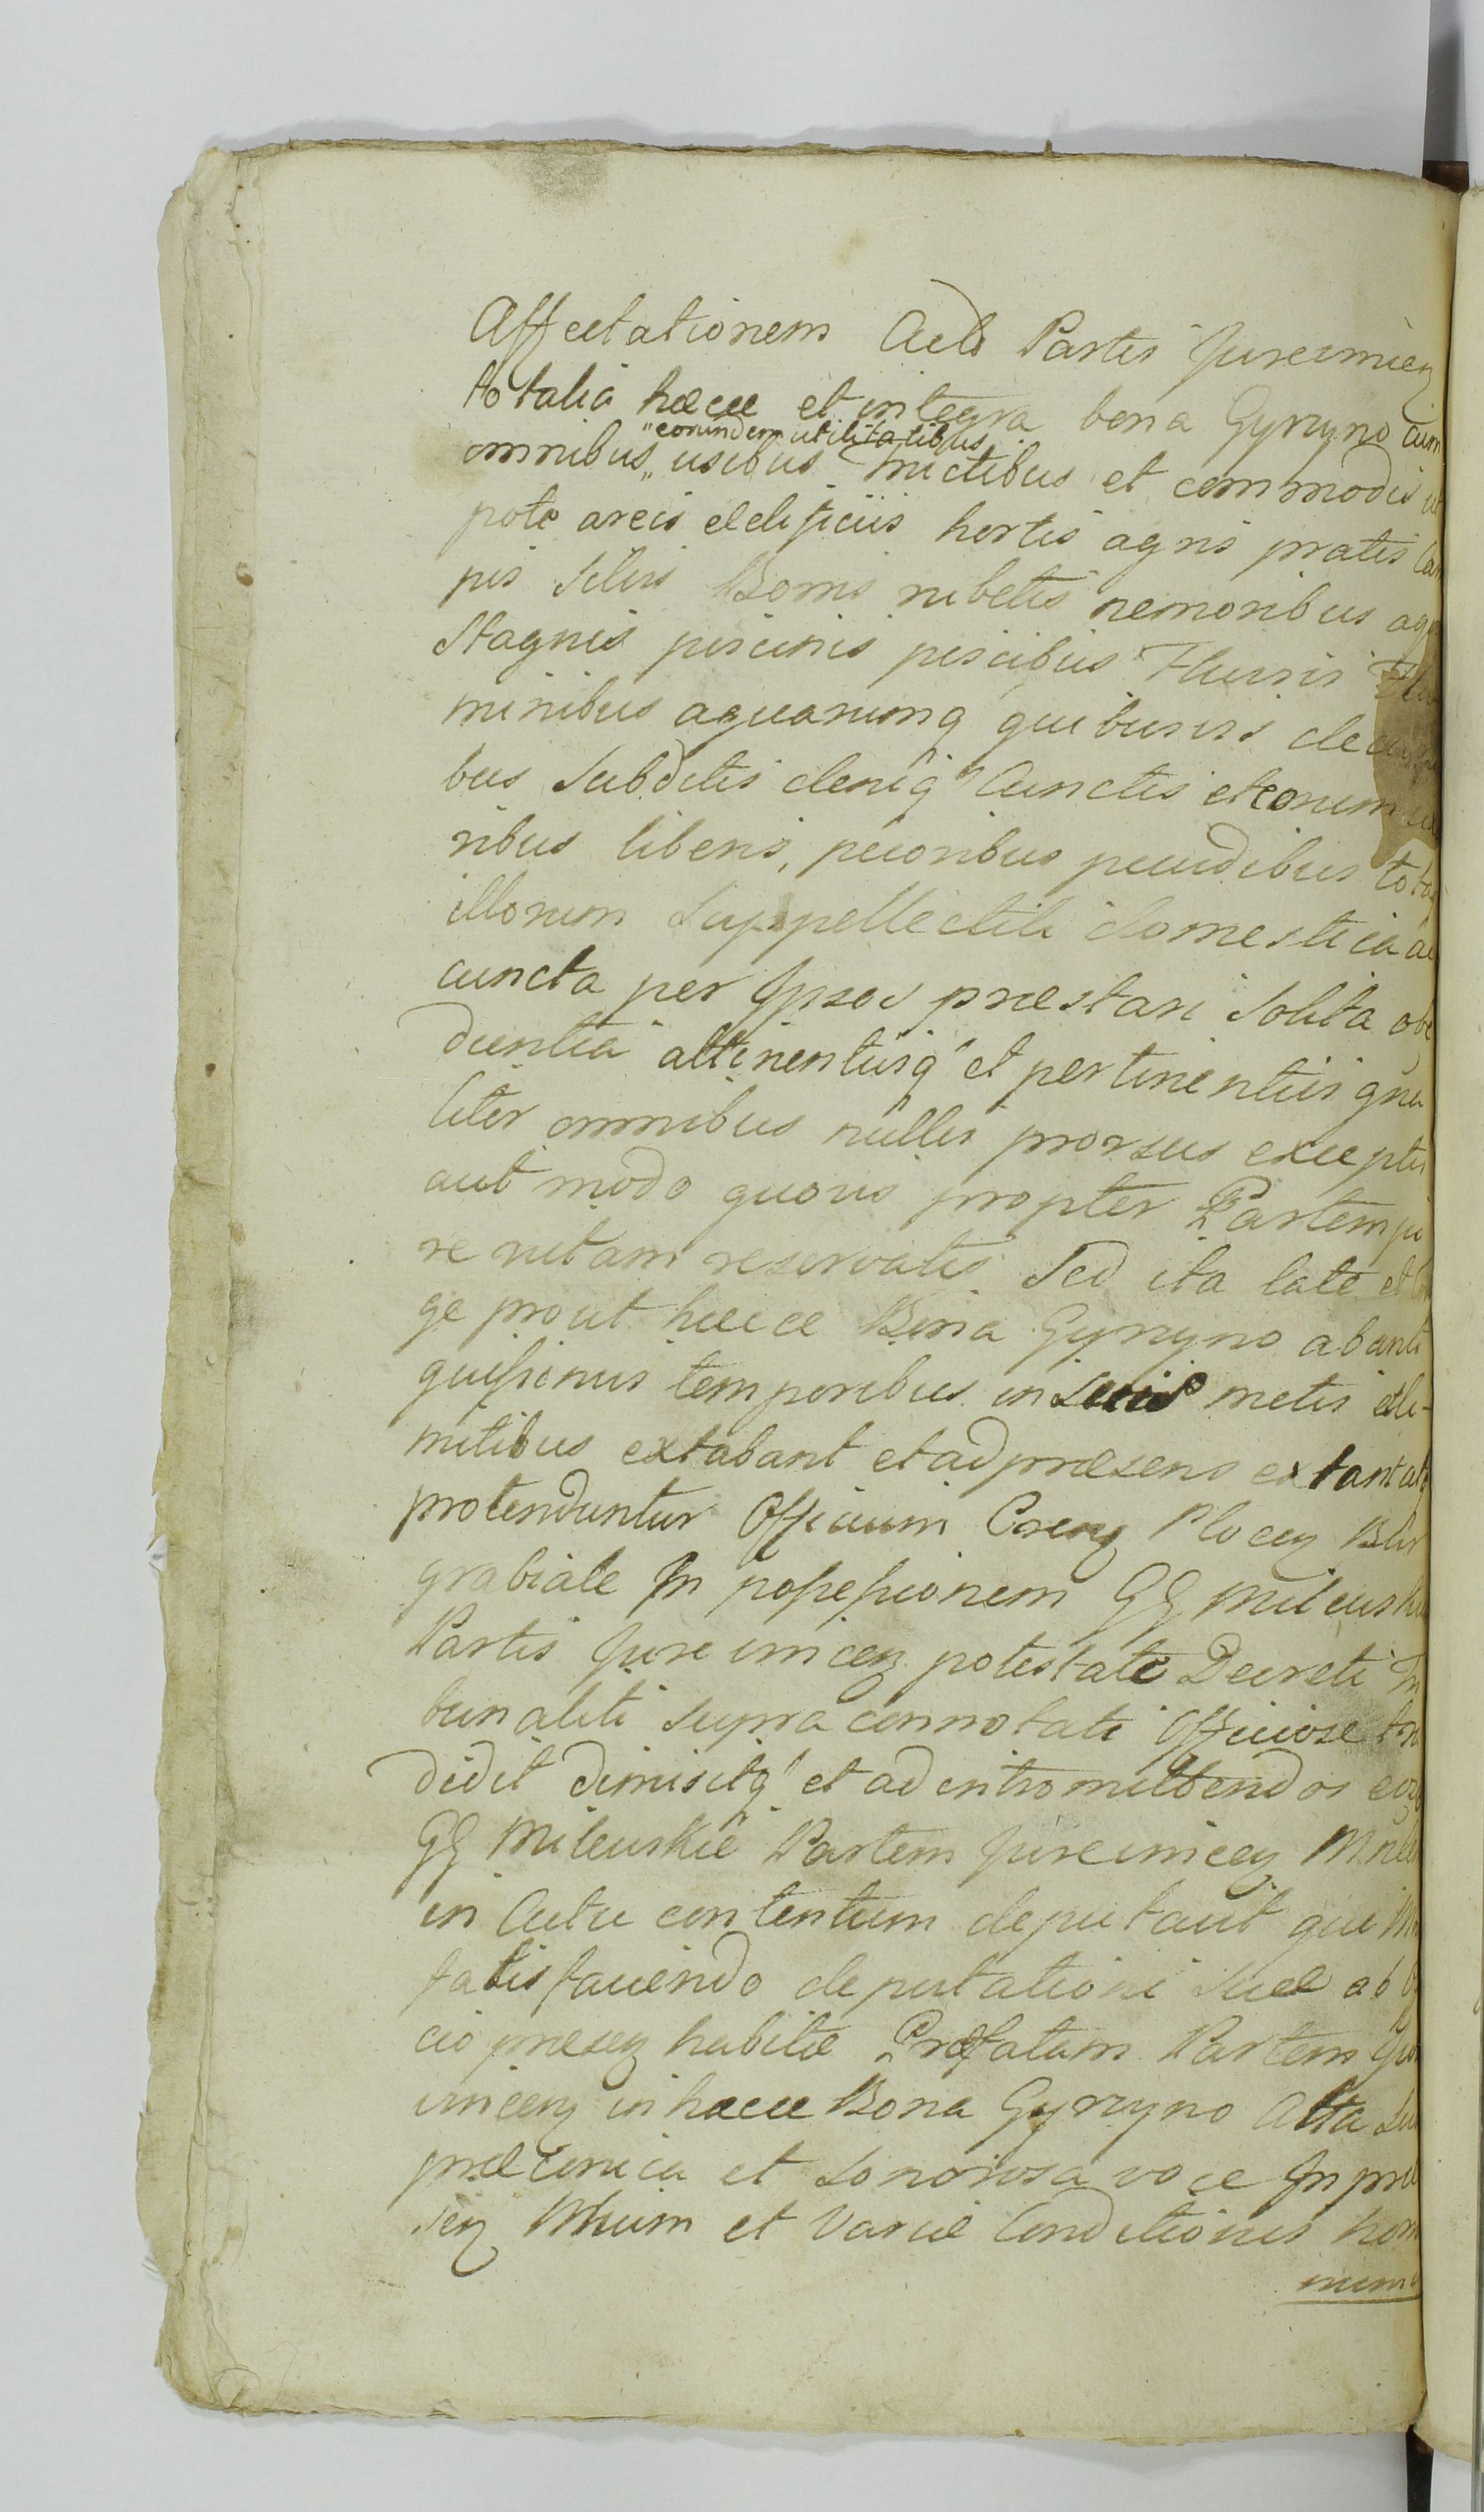 Affectationem Actb Partis Jurevincen
totalia hæcce et integra bona Gyrzyno cum
"eorundem utilitatibus
omnibus" usibus fructibus et commodis ut
pote areis ædificiis hortis agris pratis Cam
pis Silvis Borris rubetis nemoribus aqu
Stagnis piscinis piscibus Fluviis Flu
minibus aquarumq' quibusvis decursi
bus Subditis deniq' Cunctis et eorum
ribus liberis, pecoribus pecudibus tota
illorum Suppellectili domestica ac
cuncta per Jpsos præstari Solita obe
dientia attinentiisq' et pertinentiis gna
liter omnibus nullis prorsus exceptis
aut modo quovis propter Partem ju
re victam reservatis Sed ita late et lon
ge prout hæcce Bona Gyrzyno ab anti
quissimis temporibus in suis metis et li-
mitibus extabant et ad præsens extant atq
protenduntur Officium Csreng Plocen Bur
grabiale Jn possessionem GG Mileuski
Partis Jurevincen potestate Decreti Tri
bunaliti supra connotati Officiose tra
didit dimisitq' et ad intromittendos eos
GG Mileuskie Partem Jurevincen Mnlem
in Actu contentum deputavit qui
satisfaciendo deputationi suæ ab Offi
cio præsen habitæ Præfatam Partem Jure
vincen in hæcce Bona Gyrzyno Alta
præconica et Sonorosa voce Jn præ
sen Mltum et Variæ Conditionis homi
num